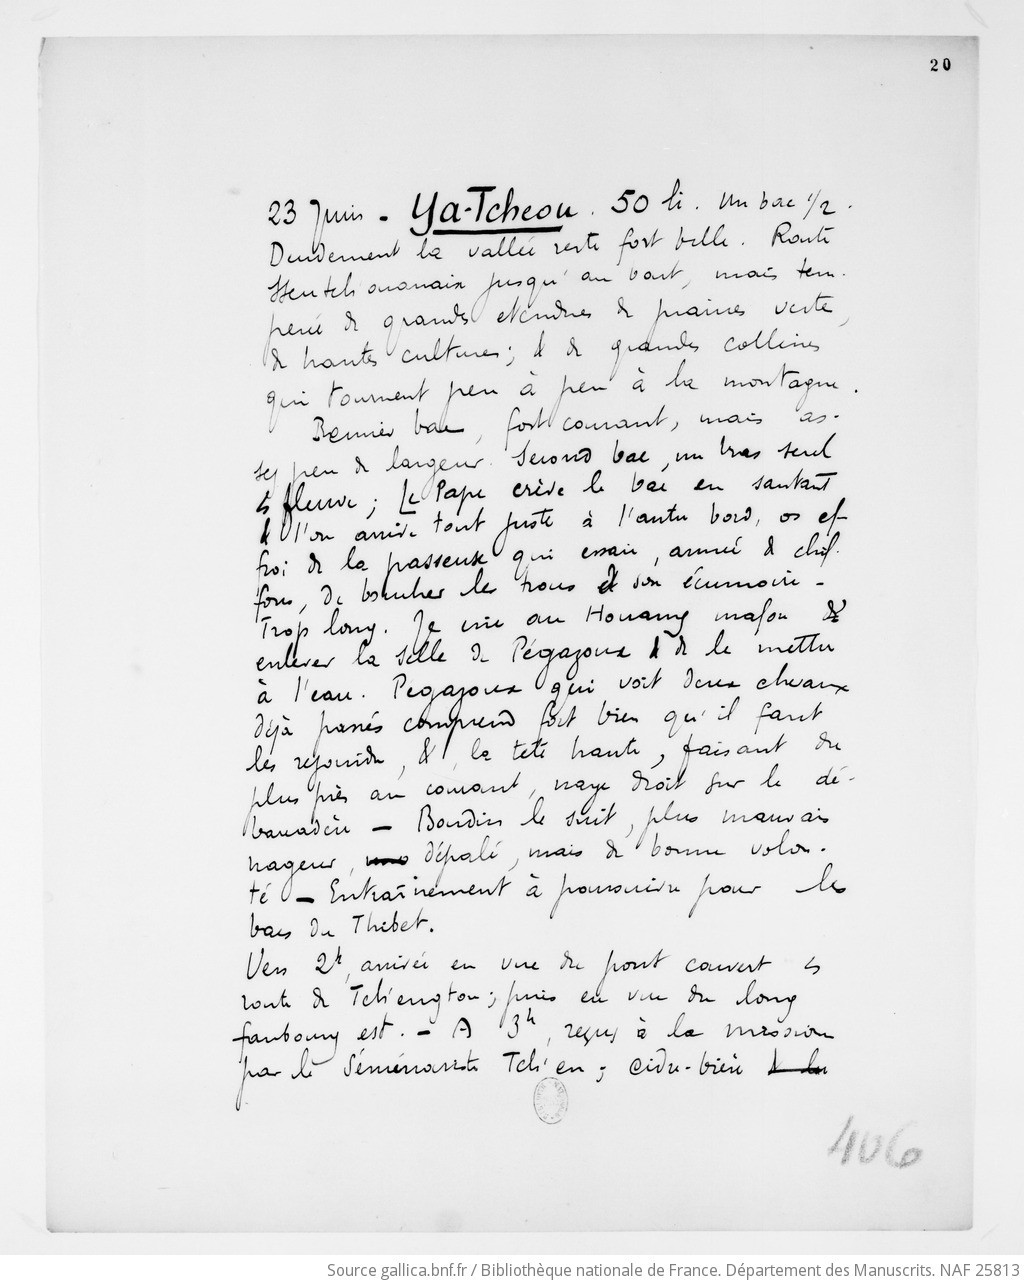 20
23 Juin - Ya-Tcheou. 50 li. Un bac 1/2.
la vallée reste fort belle. Route
jusqu'au bout, mais tem-
péré de grandes étendues de prairies verte,
de hautes cultures; & de grandes collines
qui tournent peu à peu à la montagne.
bac, fort courant, mais as-
sez peu de largeur. Second bac, un bras seul
fleuve; Le Pape crève le bac en sautant
& l'on arrive tout juste à l'autre bord, ef-
froi de la passeuse qui essaie, armée de chif-
fons, de boucher les trous de son écumoire -
Trop long. Je crie au mafou de
enlever la selle de Pégazoux & de le mettre
à l'eau. Pégazoux qui voit deux chevaux
déjà passés comprend fort bien qu'il faut
les rejoindre, & la tête haute, faisant du
plus près au courant, nage droit sur le dé-
barcadère — le suit, plus mauvais
nageur, dépalé, mais de bonne volon-
té — Entraînement à poursuivre pour les
bacs du Thibet.
Vers 2h, arrivée en vue du pont couvert
route de Tch'engtou; puis en vue du long
faubourg est. - A 3h, reçus à la mission
par le Séminariste Tch'en; cidre-bière
406
Source gallica.bnf.fr / Bibliothèque nationale de France. Département des Manuscrits. NAF 25813